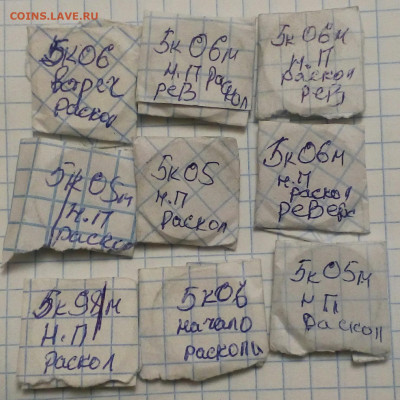 COINS.LAVE.RU
5к06
встреч
раскол
5к06м
н.П раскол
реВ
5к06м
н.П
раскол
реВ
5к05м
н.П
раскол
5к05
н.П
раскол
5к06м
н.П
раскол
реВерс
5к98м
н.П
раскол
5к06
начало
раскола
5к05м
н П
раскол